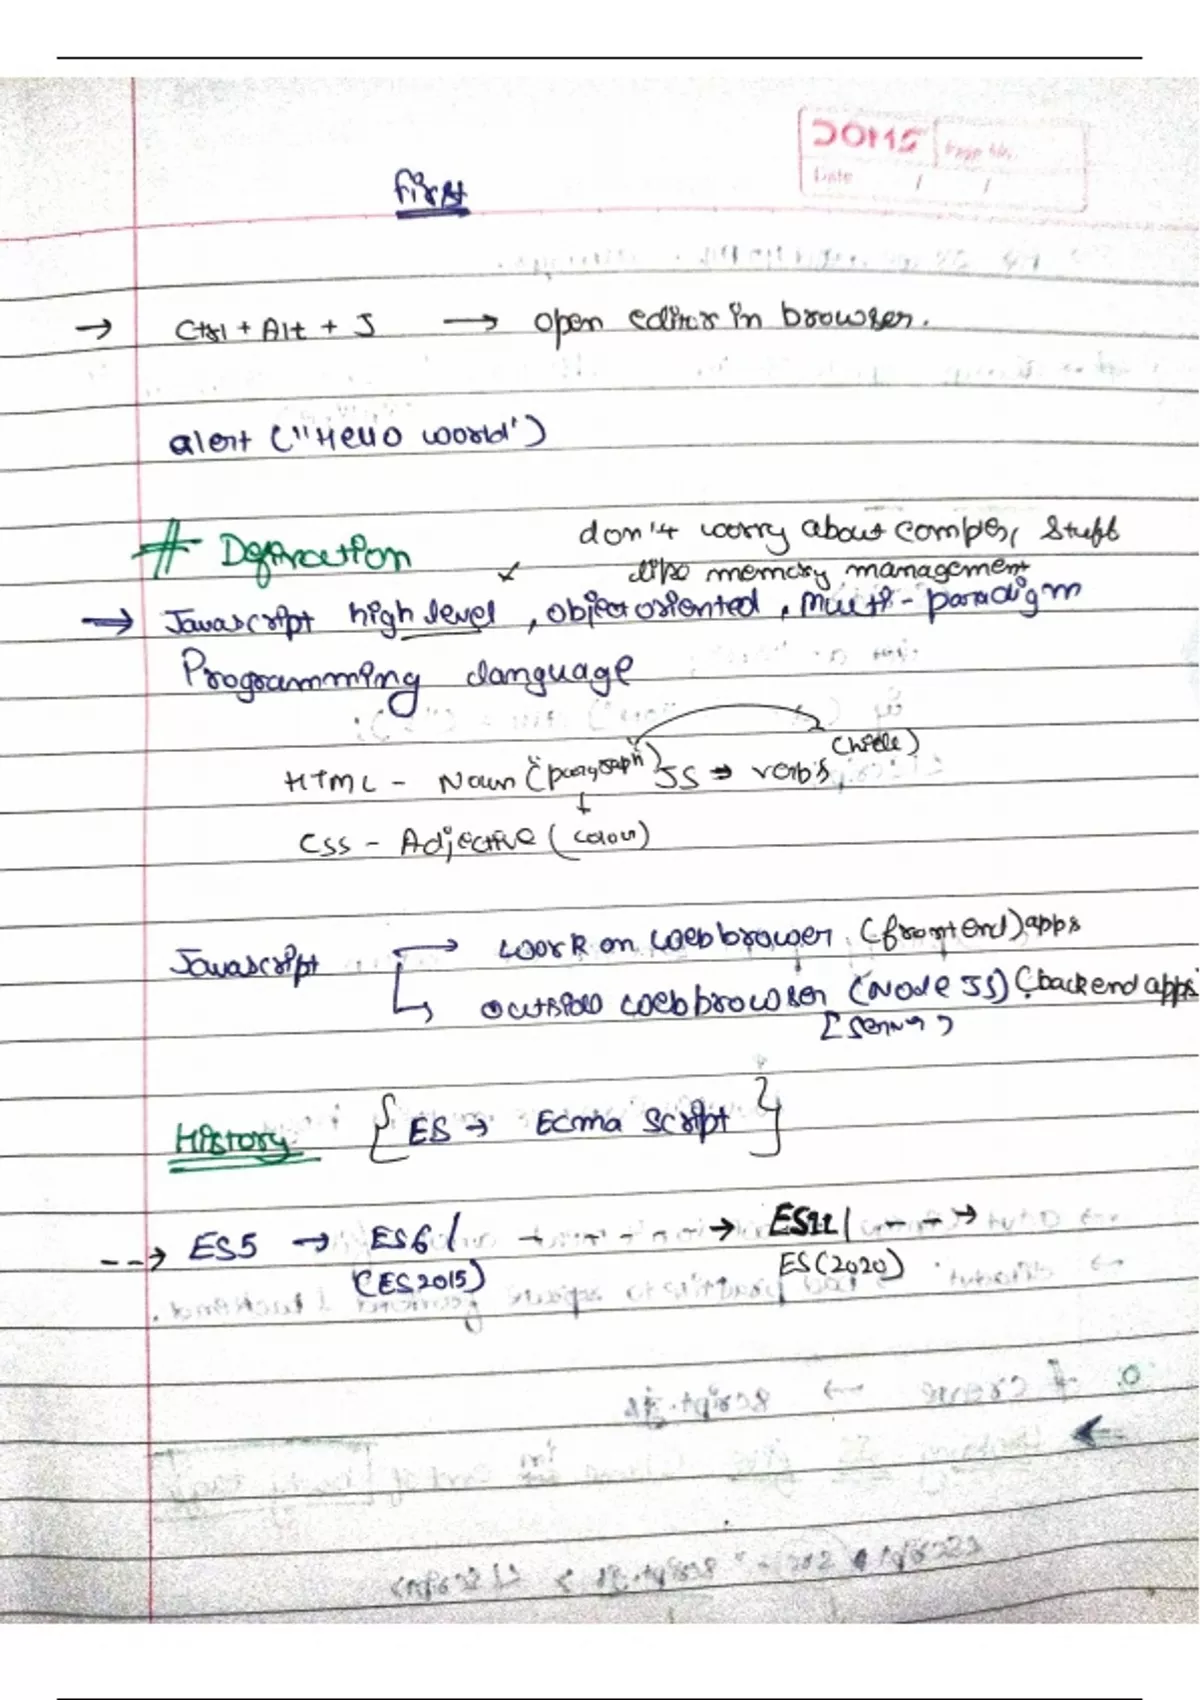 DOMS Page No.
Date / /
first
→ Ctrl + Alt + J → open editor in browser.
alert ("Hello world")
# Defination
don't worry about complex stuff
like memory management
→ Javascript high level, object oriented, multi-paradigm
Programming language
(hide)
HTML - Noun ("paragraph") JS → verb's
CSS - Adjective (color)
Javascript → work on web browser (frontend) apps
↳ outside web browser (Node JS) (backend apps)
History { ES → Ecma script }
--→ ES5 → ES6/ → ES11/ - - →
(ES2015) ES(2020)